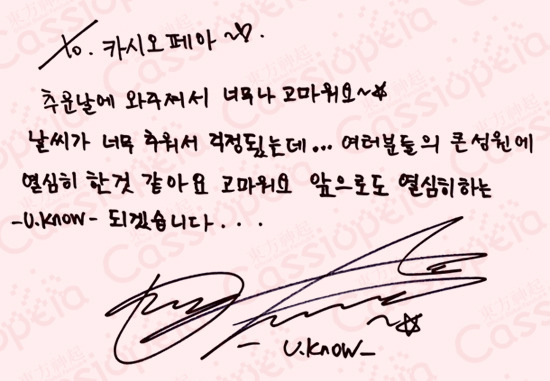 to. 카시오페아~♡.
추운날에 와주셔서 너무나 고마워요~☆
날씨가 너무 추워서 걱정됬는데... 여러분들의 큰성원에
열심히 한것 같아요 고마워요 앞으로도 열심히하는
-U.Know- 되겠습니다...
~☆
- U.Know -
東方神起
Cassiopeia